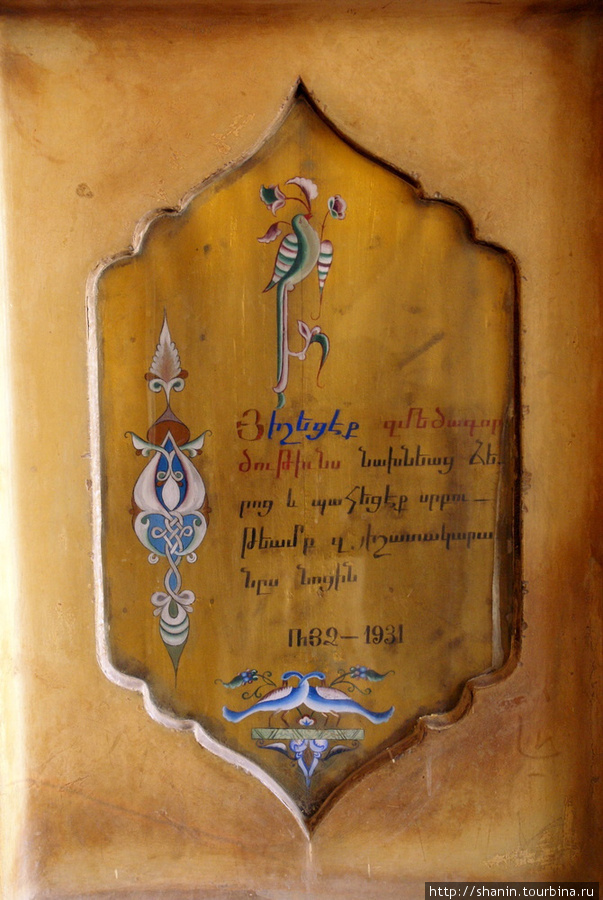 Յիշեցէք զմեծագոր
ծութիւնս նախնեաց Ձե-
րոց և պահեցէք սրբու-
թեամբ զյիշատակարա
նըս նոցին
ՌՅՁ — 1931
http://shanin.tourbina.ru